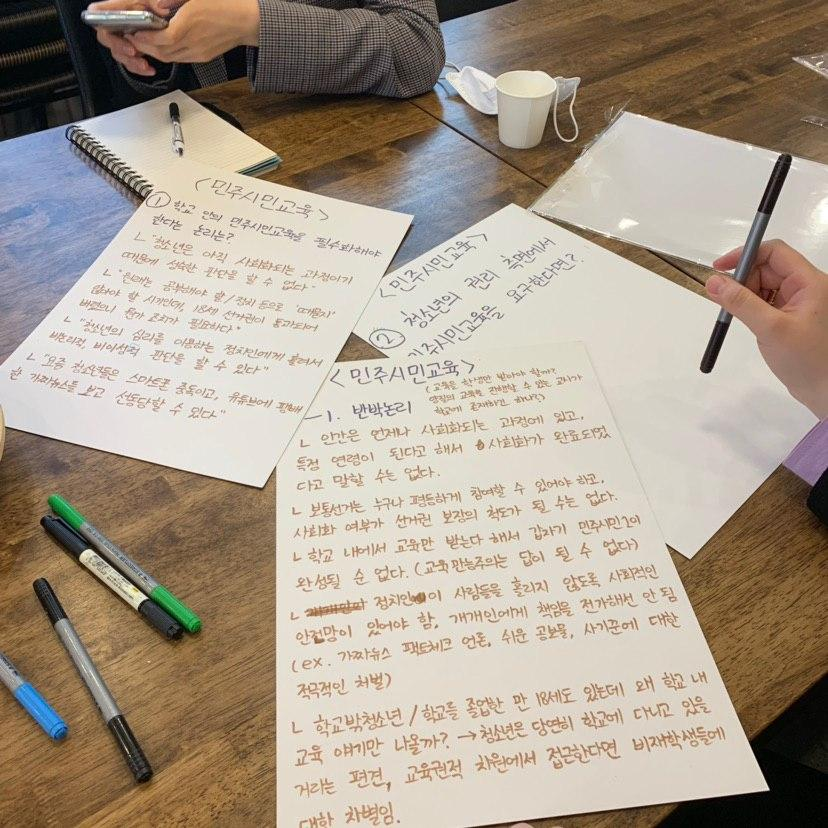 <민주시민교육>
① 학교 안의 민주시민교육을 필수화해야
한다는 논리는?
ㄴ "청소년은 아직 사회화되는 과정이기
때문에 성숙한 판단을 할 수 없다"
ㄴ "원래는 공부해야 할/정치 등으로 '때묻지'
않아야 할 시기인데, 18세 선거권이 통과되어
버렸으니 뭔가 조치가 필요하다"
ㄴ "청소년의 심리를 이용하는 정치인에게 홀려서
비논리적 비이성적 판단을 할 수 있다"
ㄴ "요즘 청소년들은 스마트폰 중독이고, 유튜브에
가짜뉴스를 보고 선동당할 수 있다"
<민주시민교육>
② 청소년의 권리 측면에서
민주시민교육을 요구한다면?
<민주시민교육>
-1. 반박논리
(교육을 학생만 받아야 할까?
양질의 교육을 진행할 수 있는 교사가
학교에 존재하긴 하나?)
ㄴ 인간은 언제나 사회화되는 과정에 있고,
특정 연령이 된다고 해서 사회화가 완료되었
다고 말할 수는 없다.
ㄴ 보통선거는 누구나 평등하게 참여할 수 있어야 하고,
사회화 여부가 선거권 보장의 척도가 될 수는 없다.
ㄴ 학교 내에서 교육만 받는다 해서 갑자기 민주시민201
완성될 순 없다. (교육만능주의는 답이 될 수 없다)
ㄴ 정치인이 사람들을 홀리지 않도록 사회적인
안전망이 있어야 함, 개개인에게 책임을 전가해선 안 됨
(ex. 가짜뉴스 팩트체크 언론, 쉬운 공보물, 사기꾼에 대한
적극적인 처벌)
ㄴ 학교밖청소년/학교를 졸업한 만 18세도 있는데 왜 학교 내
교육 얘기만 나올까? → 청소년은 당연히 학교에 다니고 있을
거라는 편견, 교육권적 차원에서 접근한다면 비재학생들에
대한 차별임.